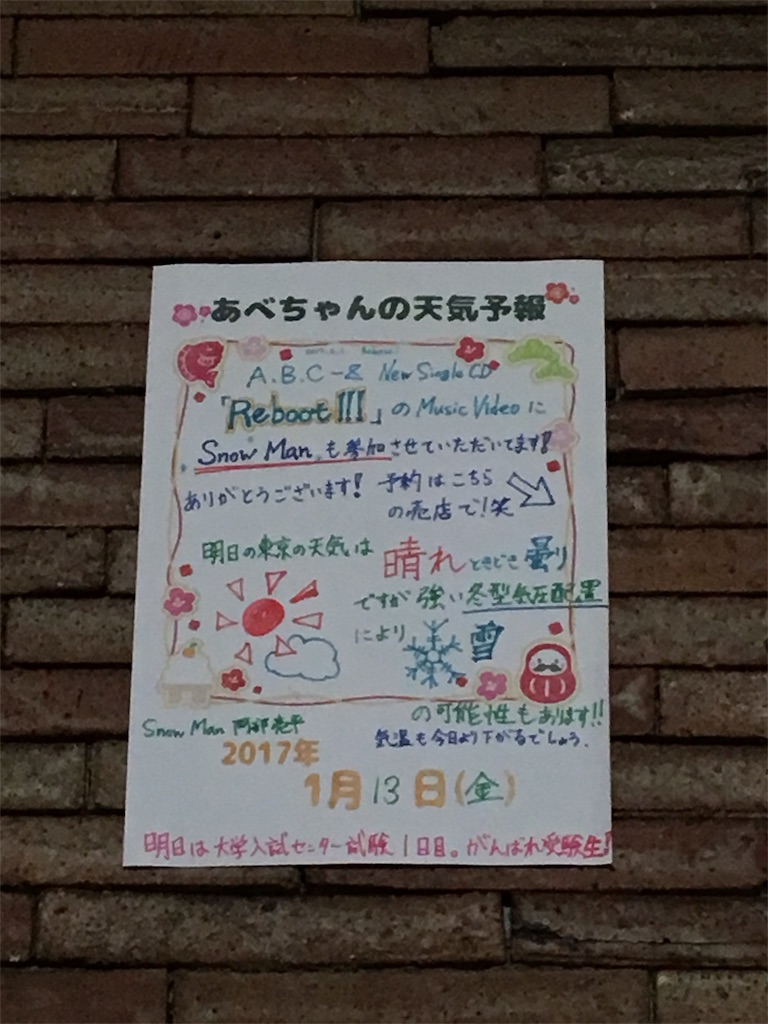 あべちゃんの天気予報
A.B.C-Z New Single CD
「Reboot!!!」の Music Videoに
Snow Manも参加させていただいてます!
ありがとうございます! 予約はこちら
の売店で!笑
明日の東京の天気は
晴れときどき曇り
ですが強い冬型気圧配置
により 雪
の可能性もあります!!
気温も今日より下がるでしょう。
Snow Man 阿部亮平
2017年
1月13日(金)
明日は大学入試センター試験1日目。がんばれ受験生!